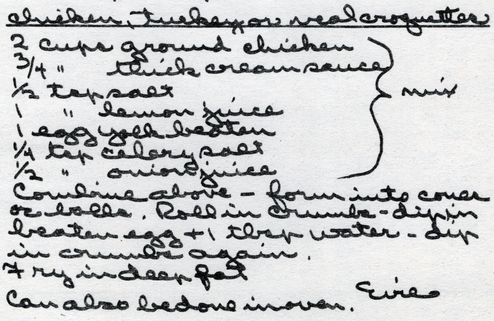 chicken, turkey, or veal croquettes
2 cups ground chicken
3/4 " thick cream sauce
1/2 tsp salt
1 " lemon juice
1 egg yolk beaten
1/4 tsp celery salt
1/2 " onion juice
mix
Combine above - form into cones
or balls. Roll in crumbs - dip in
beaten egg + 1 tbsp water - dip
in crumbs again.
Fry in deep fat
Can also be done in oven.